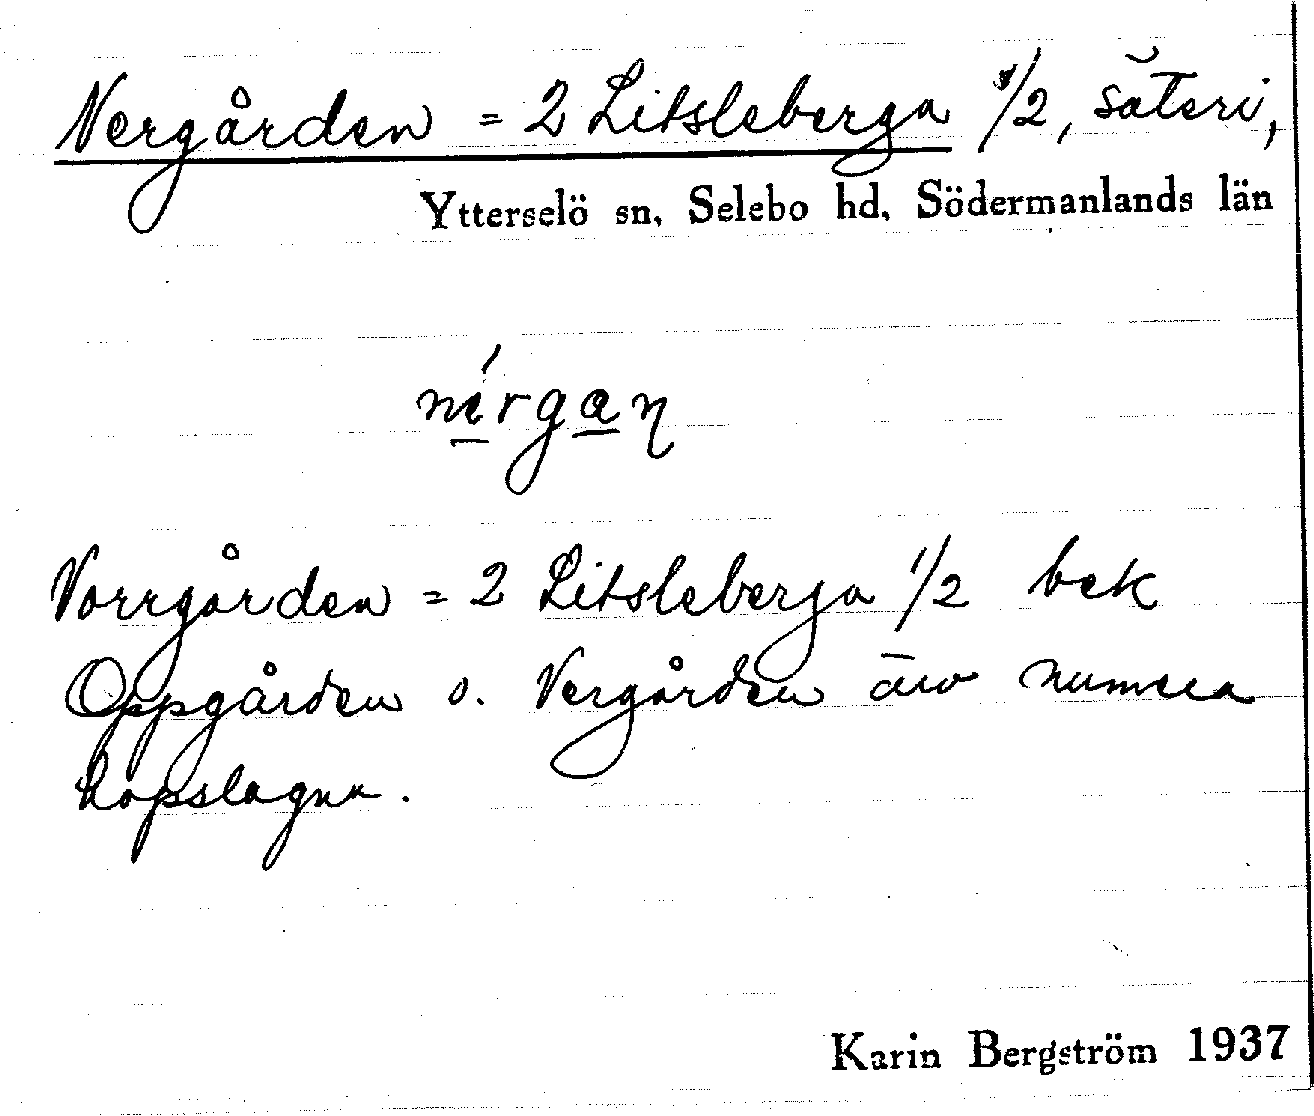 Nergården = 2 Litsleberga 1/2, säteri,
Ytterselö sn, Selebo hd, Södermanlands län
Norrgården = 2 Litsleberga 1/2 bek
Oppgården o. Nergården äro numera
hopslagna.
Karin Bergström 1937